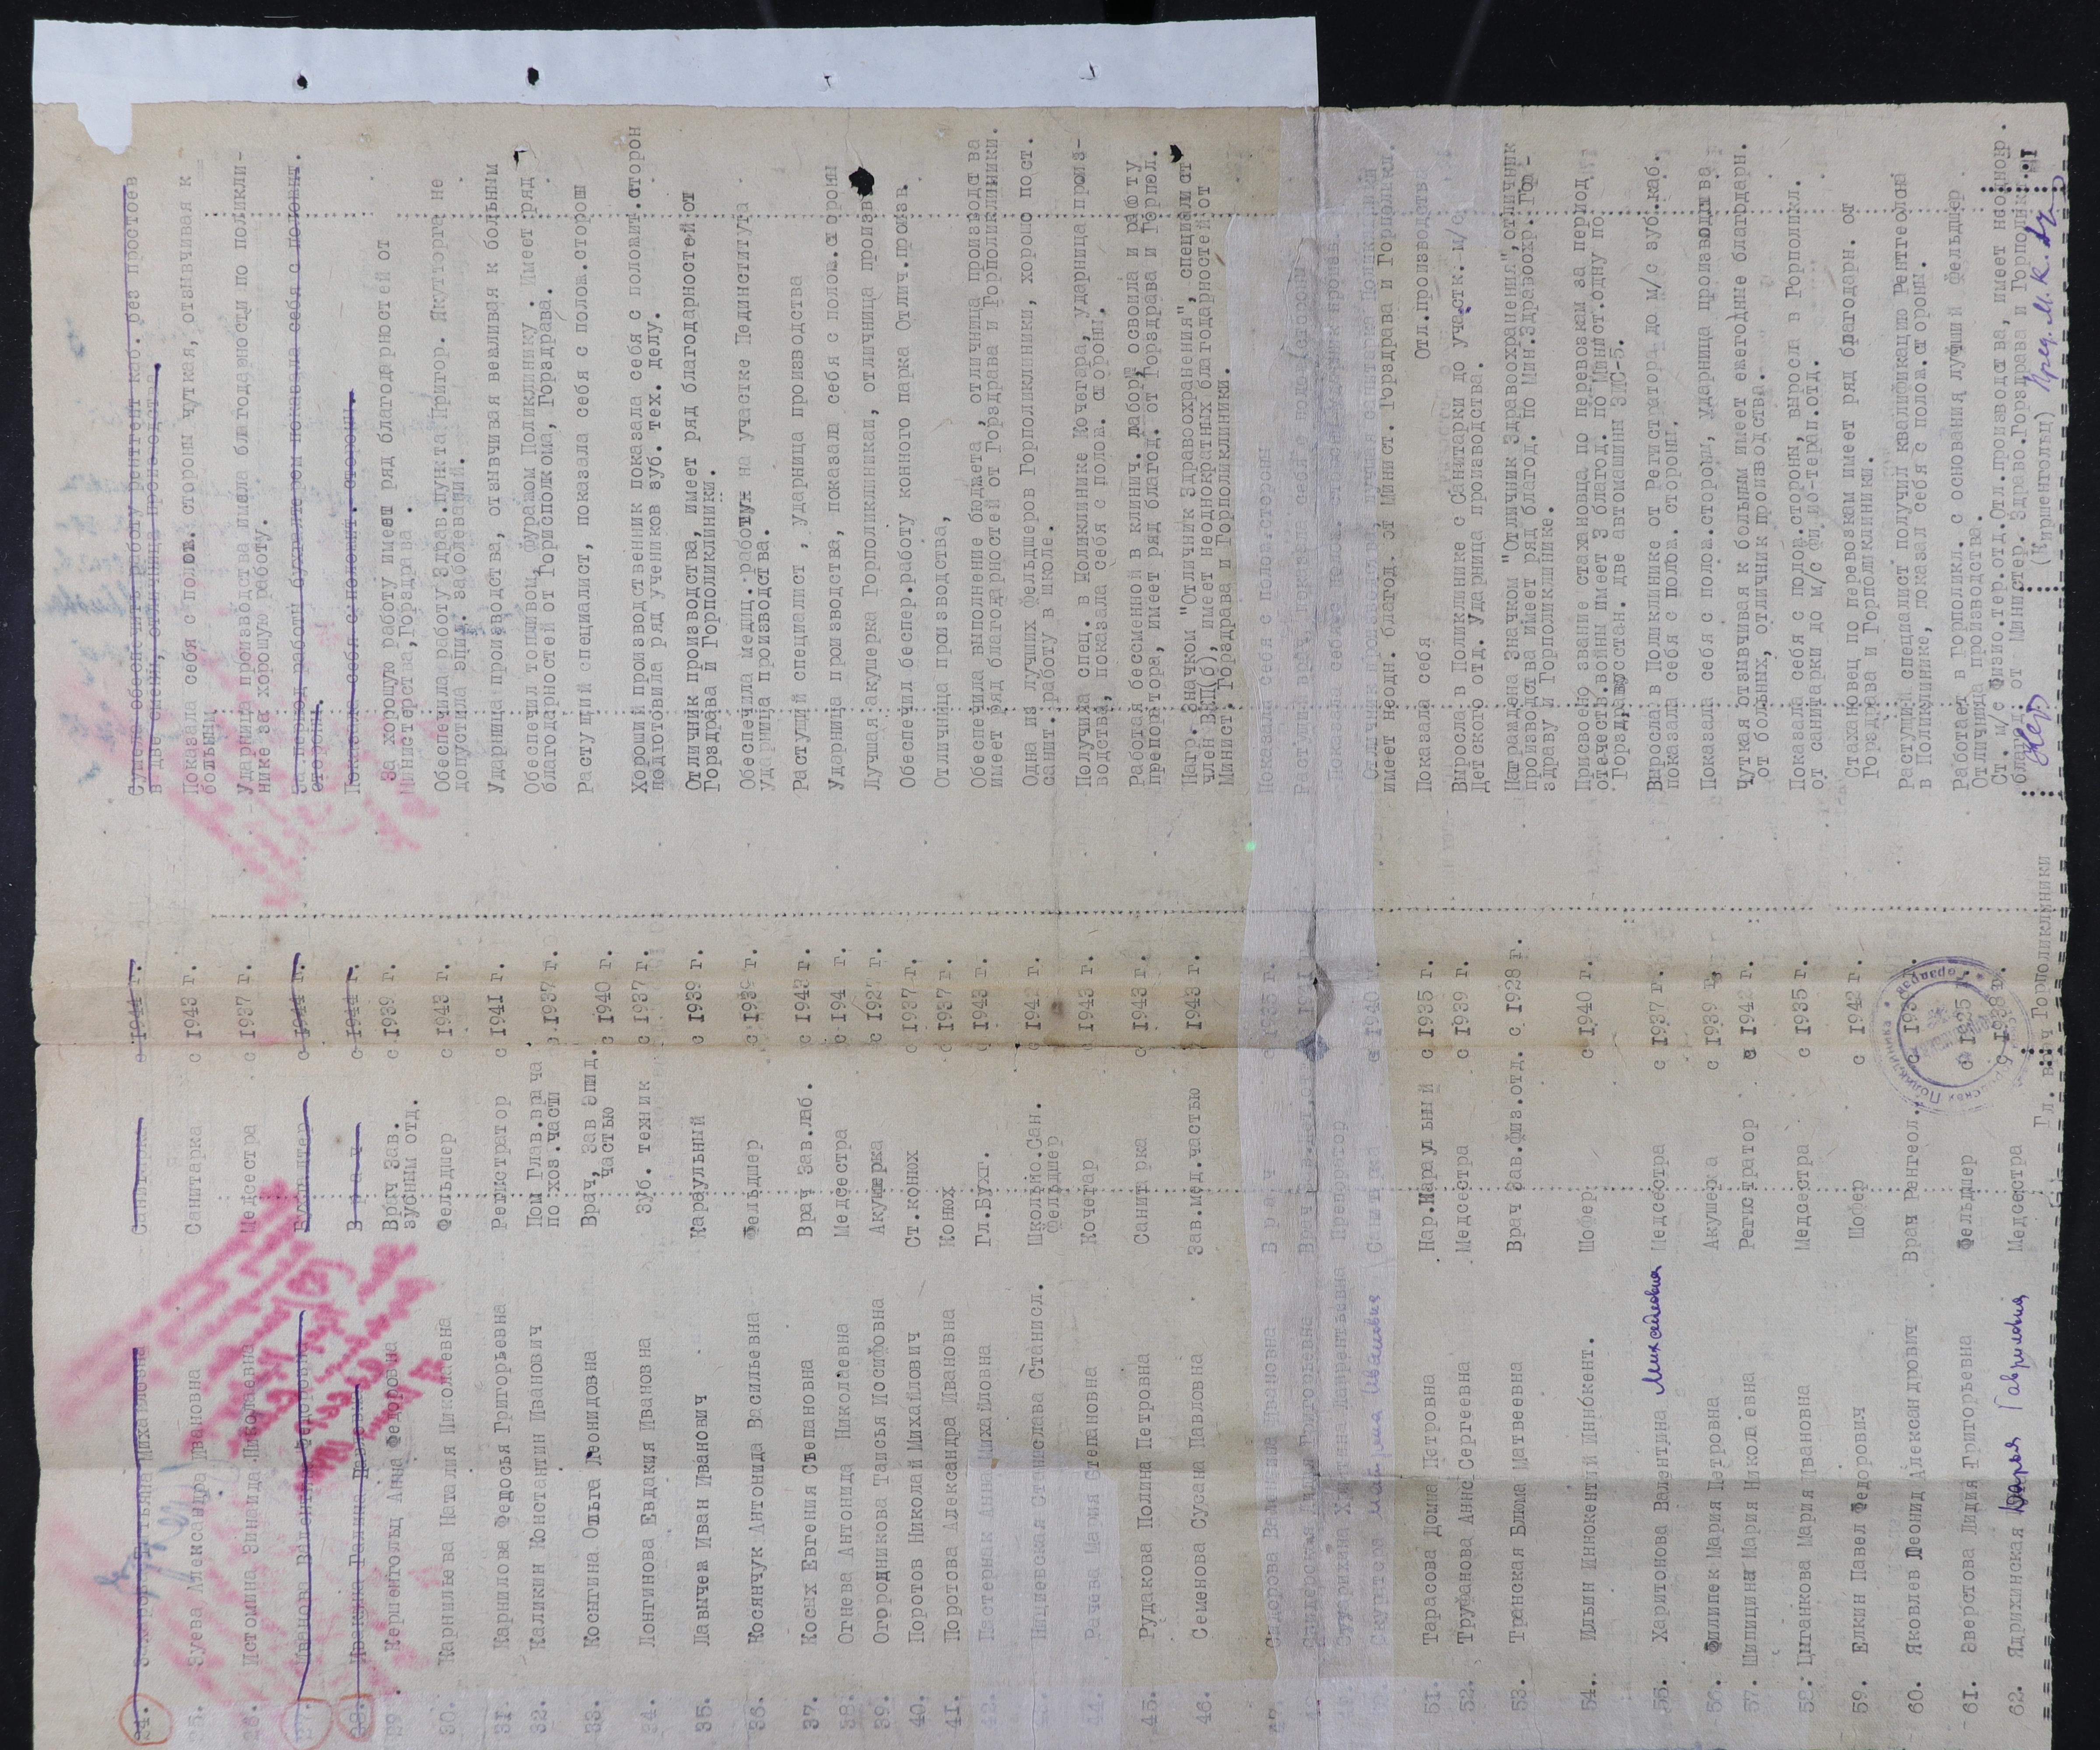 24. Михайловна Санитарка с 1944 г. обеспечить работу рентген каб. без простоев
в две смены, отличница производства.
25. Зуева Александра Ивановна Санитарка с 1943 г. Показала себя с полож. стороны чуткая, отзывчивая к
больным
26. Истомина Зинаида Николаевна Медсестра с 1937 г. Ударница производства имела благодарности по поликли-
нике за хорошую работу.
27. Иванова Валентина Федоровна Бухгалтер с 1944 г. За период работы бухгалтером показала себя с полож.
сторон.
28. Галина Павловна Врач с 1944 г. Показала себя с полож. стороны.
29. Кершенгольц Анна Федоровна Врач Зав. с 1939 г. За хорошую работу имеет ряд благодарностей от
зубным отд. Министерства, Горздрава.
30. Карнильева Наталия Николаевна Фельдшер с 1943 г. Обеспечила работу Здрав.пункта Пригор. Якутторга не
допустила эпид. заболеваний.
31. Карнилова Федосья Григорьевна Регистратор с 1941 г. Ударница производства, отзывчивая вежливая к больным
32. Каликин Константин Иванович Пом Глав.врача с 1937 г. Обеспечил топливом, фуражом Поликлинику. Имеет ряд
по хоз.части благодарностей от Горисполкома, Горздрава.
33. Косыгина Ольга Леонидовна Врач, Зав Эпид. с 1940 г. Растущий специалист, показала себя с полож.стороны
частью
34. Лонгинова Евдакия Ивановна Зуб. техник с 1937 г. Хороший производственник показала себя с полжит.сторон
подготовила ряд учеников зуб. тех. делу.
35. Лавычев Иван Иванович Караульный с 1939 г. Отличник производства, имеет ряд благодарностей от
Горздрава и Горполиклиники.
36. Косянчук Антонида Васильевна Фельдшер с 1939 г. Обеспечила медиц. работу на участке Пединститута
ударница производства.
37. Косых Евгения Степановна Врач Зав.лаб. с 1943 г. Растущий специалист, ударница производства
38. Огнева Антонида Николаевна Медсестра с 194 г. Ударница производства, показала себя с полож.стороны
39. Огородникова Таисья Иосифовна Акушерка с 1927 г. Лучшая акушерка Горполиклинкаи, отличница произв.
40. Поротов Николай Михайлович Ст.конюх с 1937 г. Обеспечил беспер.работу конного парка Отлич.произв.
41. Поротова Александра Ивановна Конюх с 1937 г. Отличница производства,
42. Пастернак Анна Михайловна Гл.Бухг. с 1943 г. Обеспечила выполнение бюджета, отличница производства
имеет ряд благодарностей от Горздрава и Горполиклиники.
Станислава Станисл. Школьно.Сан. с 1942 г. Одна из лучших фельдшеров Горполиклиники, хорошо пост.
фельдшер санит. работу в школе.
44. Рачева Мария Степановна Кочегар с 1943 г. Получила спец. в Поликлинике Кочегара, ударница произ-
водства, показала себя с полож. стороны.
45. Рудакова Полина Петровна Санитарка с 1943 г. Работая бессменной в клинич. лабор. освоила и работу
препоратора, имеет ряд благод. от Горздрава и Горпол.
46. Семенова Сусана Павловна Зав.мед.частью с 1943 г. Нагр. Значком "Отличник Здравоохранения", специалист
член ВКП(б), имеет неоднократных благодарностей от
Минист. Горздрава и Горполиклиники.
47. Сидорова Валентина Ивановна Врач с 1935 г. Показала себя с полож.стороны
Григорьевна Врач
Христина Лаврентьевна Препоратор
Скурятова Ивановна Санитарка с 1940 г. Отличник производства, лучшая санитарка Поликлиники
имеет неодн. благод. от Минист. Горздрава и Горполикл.
51. Тарасова Домна Петровна Нар.Караульный с 1935 г. Показала себя Отл.производства
52. Труфанова Анна Сергеевна Медсестра с 1939 г. Выросла в Поликлинике с Санитарки до участк. м/с
Детского отд. Ударница производства.
53. Транская Блюма Матвеевна Врач Зав.физ.отд. с 1928 г. Награждена Значком "Отличник Здравоохранения", отличник
производства имеет ряд благод. по Мин.Здравоохр. Гор-
здраву и Горполиклинике.
54. Ильин Иннокентий Иннокент. Шофер с 1940 г. Присвоено звание стахановца по перевозкам за период
отечеств.войны имеет 3 благод. по Минист.одну по.
Горздраву восстан. две автомашины ЗИС-5.
55. Харитонова Валентина Михайловна Медсестра с 1937 г. Выросла в Поликлинике от Регистратора до м/с зуб.каб.
показала себя с полож. стороны.
56. Филипек Мария Петровна Акушерка с 1939 г. Показала себя с полож.стороны, ударница производства
57. Шипицина Мария Николаевна Регистратор с 1942 г. Чуткая отзывчивая к больным имеет ежегодные благодарн.
от больных, отличник производства.
58. Цыганкова Мария Ивановна Медсестра с 1935 г. Показала себя с полож.стороны, выросла в Горполикл.
от санитарки до м/с Физио-терап.отд.
59. Елкин Павел Федорович Шофер с 1942 г. Стахановец по перевозкам имеет ряд благодарн. от
Горздрава и Горполиклиники.
60. Яковлев Леонид Александрович Врач Рентгеол. с 193 г. Растущий специалист получил квалификацию Рентгеолога
в Поликлинике, показал себя с полож.стороны.
61. Зверстова Лидия Григорьевна Фельдшер с 1925 г. Работает в Горполикл. с основания лучший фельдшер
Отличница производства.
62. Ядрихинская Дарья Гавриловна Медсестра с 1938 г. Ст. м/с Физио.тер.отд.Отл.производства, имеет неоднокр.
благод. от Министер. Здраво.Горздрава и Горполикл.
Гл. врач Горполиклиники (Киршенгольц) Пред. М. К.